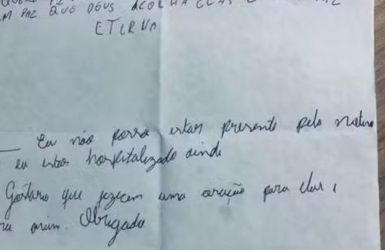 M PAZ QUE DEUS ACOLHA ELAS
ETERNA
Eu não posso estar presente pelo motivo
eu estar hospitalizado ainda
Gostaria que fizecem uma oração para elas,
mim. Obrigado